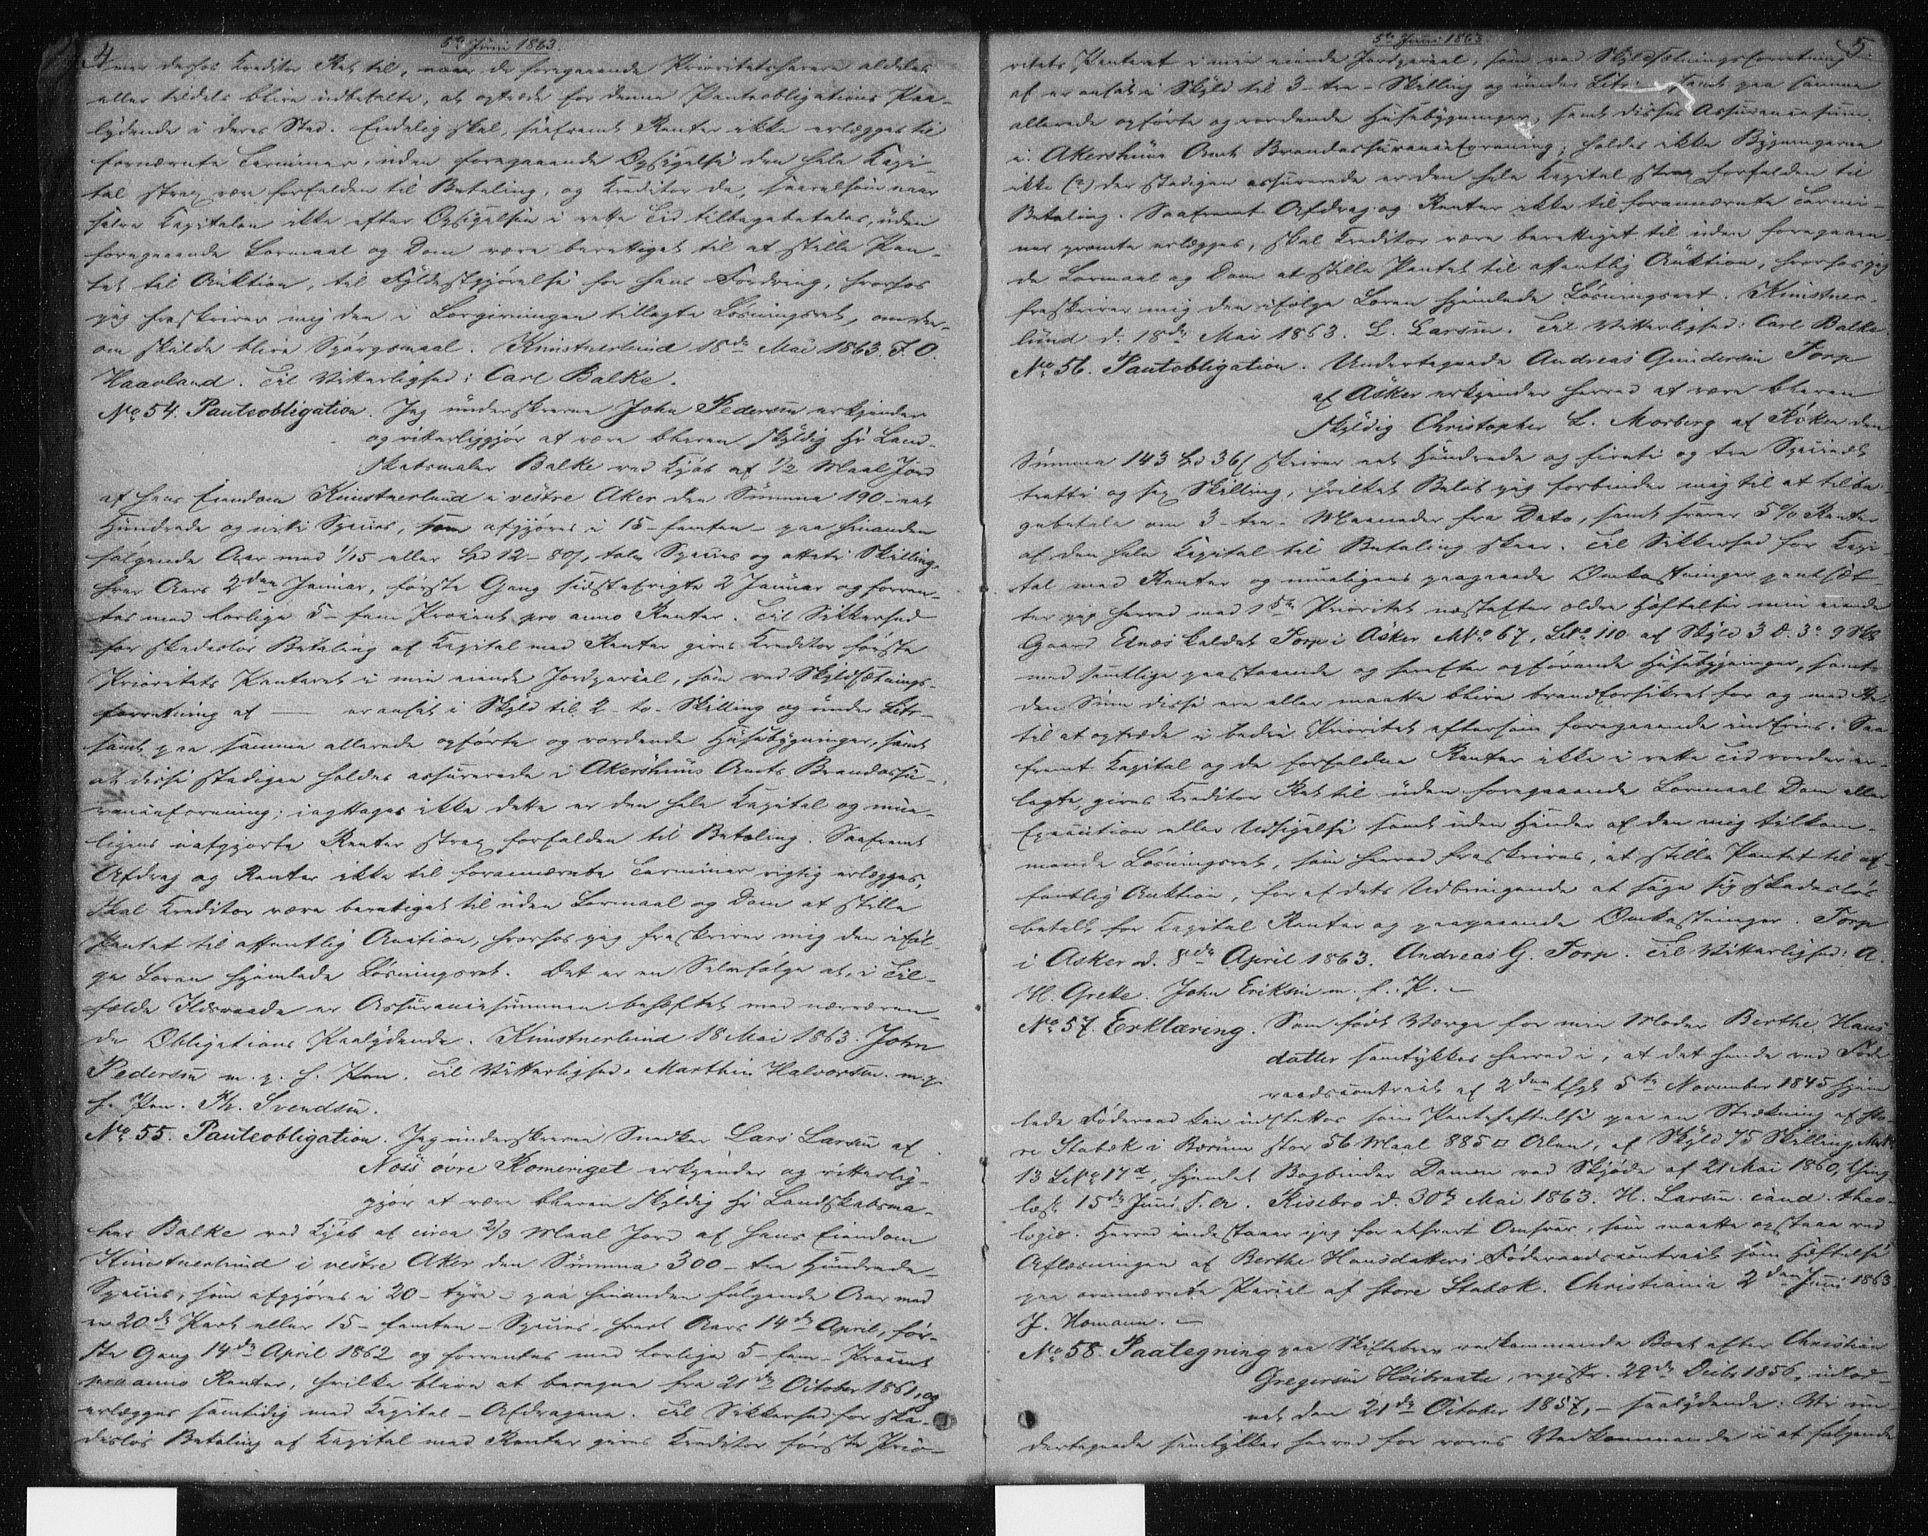 4
5te Juni 1863.
mer derfor Kreditor Ret til, naar de foregaaende Prioritetshavere aldeles
eller tildels blive udbetalte, at optræde for denne Panteobligations Paa-
lydende i deres Sted. Endelig skal, saafremt Renter ikke erlægges til
fornævnte Terminer, uden foregaaende Opsigelse den hele Kapi-
tal strax være forfalden til Betaling, og Kreditor da, saavelsom naar
selve Kapitalen ikke efter Opsigelsen i rette Tid tilbagebetales, uden
foregaaende Lovmaal og Dom være berettiget til at stille Pan-
tet til Auktion, til Fyldestgjørelse for hans Fordring, hvorhos
jeg fraskriver mig den i Lovgivningen tillagte Løsningsret, om der-
om skulde blive Spørgsmaal. Kunstnerlund 18de Mai 1863. T. O.
Haavland. Til Vitterlighed: Carl Balke.
No 54. Panteobligation. Jeg underskrevne John Pedersen erkjender
og vitterliggjør at være bleven skyldig Hr Land-
skabsmaler Balke ved Kjøb af 1/2 Maal Jord
af hans Eiendom Kunstnerlund i vestre Aker den Summa 190 - et
Hundrede og niti Species, som afgjøres i 15 - femten - paa hinanden
følgende Aar med 1/15 eller Spd 12 - 80 s, tolv Species og otteti Skilling,
hver Aars 2den Januar, første Gang sidstafvigte 2 Januar og forren-
tes med lovlige 5 - fem Procent pro anno Renter. Til Sikkerhed
for skadesløs Betaling af Kapital med Renter gives Kreditor første
Prioritets Panteret i min eiende Jordparcel, som ved Skyldsætnings-
forretning af — er ansat i Skyld til 2 - to - Skilling og under Litr-
samt paa samme allerede opførte og vordende Husebygninger, samt
at disse stadigen holdes assurerede i Akershuus Amts Brandassu-
ranceforening; iagttages ikke dette er den hele Kapital og mue-
ligens uafgjorte Renter strax forfalden til Betaling. Saafremt
Afdrag og Renter ikke til forannævnte Terminer rigtig erlægges,
skal Kreditor være berettiget til uden Lovmaal og Dom at stille
Pantet til offentlig Auction, hvorhos jeg fraskriver mig den iføl-
ge Loven hjemlede Løsningsret. Det er en Selvfølge at, i Til-
fælde Ildsvaade er Assurancesummen behæftet med nærværen-
de Obligations Paalydende. Kunstnerlund 18 Mai 1863. John
Pedersen m. p. h. Pen. Til Vitterlighed: Marthin Halvorsen m. p.
h. Pen. Th. Svendsen.
No 55. Panteobligation. Jeg underskrevne Snedker Lars Larsen af
Næss øvre Romeriget erkjender og vitterlig-
gjør at være bleven skyldig Hr Landskabsma-
ler Balke ved Kjøb af circa 2/3 Maal Jord af hans Eiendom
Kunstnerlund i vestre Aker den Summa 300 - tre Hundrede -
Species, som afgjøres i 20 - tyve - paa hinanden følgende Aar med
en 20de Part eller 15 - femten - Species, hvert Aars 14de April, før-
ste Gang 14de April 1862 og forrentes med lovlige 5 - fem - Procent
pro anno Renter, hvilke blive at beregne fra 21de October 1861, og
erlægges samtidig med Kapital-Afdragene. Til Sikkerhed for ska-
desløs Betaling af Kapital med Renter gives Kreditor første Prio-
5te Juni 1863.
5.
ritets Panteret i min eiende Jordparcel, som ved Skyldsætningsforretning
af er ansat i Skyld til 3 - tre - Skilling og under Litr samt paa samme
allerede opførte og vordende Husebygninger, samt disses Assurancesum
i Akershuus Amts Brandassuranceforening; holdes ikke Bygningerne
ikke (o:) der stadigen assurerede er den hele Kapital strax forfalden til
Betaling. Saafremt Afdrag og Renter ikke til forannævnte Termi-
ner promte erlægges, skal Kreditor være berettiget til uden foregaaen-
de Lovmaal og Dom at stille Pantet til offentlig Auktion, hvorhos jeg
fraskriver mig den ifølge Loven hjemlede Løsningsret. Kunstner-
lund d. 18de Mai 1863. L. Larsen. Til Vitterlighed: Carl Balke.
No 56. Pantobligation. Undertegnede Andreas Gundersen Torp
af Asker erkjender herved at være bleven
skyldig Christopher L. Morberg af Røken den
Summa 143 Spd 36 s skriver et Hundrede og firti og tre Speciedr
tretti og sex Skilling, hvilket Beløb jeg forbinder mig til at tilba-
gebetale om 3 - tre - Maaneder fra Dato, samt svarer 5 % Renter
af den hele Kapital til Betaling skeer. Til Sikkerhed for Kapi-
tal med Renter og mueligens paagaaende Omkostninger pantsæt-
ter jeg herved med 1ste Prioritet næstefter ældre Hæftelser min eiende
Gaard Enæs kaldet Torp i Asker M.No 67, L.No 110 af Skyld 3 d. 3 o 9 Skl
med samtlige paastaaende og herefter opførende Husebygninger, samt
den Sum disse ere eller maatte blive brandforsikret for og med Ret
til at optræde i bedre Prioritet eftersom foregaaende indfries. Saa-
fremt Kapital og de forfaldne Renter ikke i rette Tid vorder er-
lagte, gives Kreditor Ret til uden foregaaende Lovmaal Dom eller
Execution eller Udsigelse samt uden Hinder af den mig tilkom-
mende Løsningsret, som herved fraskrives, at stille Pantet til of-
fentlig Auktion, for af dets Udbringende at søge sig skadesløs
betalt for Kapital Renter og paagaaende Omkostninger. Torp
i Asker d. 8de April 1863. Andreas G. Torp. Til Vitterlighed: A.
H. Grette. John Eriksen m. f. P. -
No 57. Erklæring. Som født Værge for min Moder Berthe Hans
datter samtykkes herved i, at det hende ved Føde-
raadscontract af 2den thgl. 5te November 1845 hjem-
lede Føderaad kan udslettes som Pantehæftelse paa en Strækning af Sto-
re Stabæk i Bærum stor 56 Maal 885 □ Alen, af Skyld 75 Skilling, M.No
13 L.No 17d, hjemlet Bogbinder Damm ved Skjøde af 21 Mai 1860, thing-
læst 15de Juni s. A. Risebro d. 30te Mai 1863. H. Larsen cand. theo-
logiæ. Herved indestaaer jeg for ethvert Ansvar, som maatte opstaae ved
Aflæsningen af Berthe Hansdatters Føderaadscontract som Hæftelse
paa ovennævnte Parcel af store Stabæk. Christiania 2den Juni 1863
J. Homann. -
No 58. Paategning paa Skiftebrev vedkommende Boet efter Christian
Gregersen Høibraate, registr. 29de Decbr 1856, udsted-
net den 21de October 1857, - saalydende: Vi un-
dertegnede samtykker herved for vores Vedkommende i at følgende